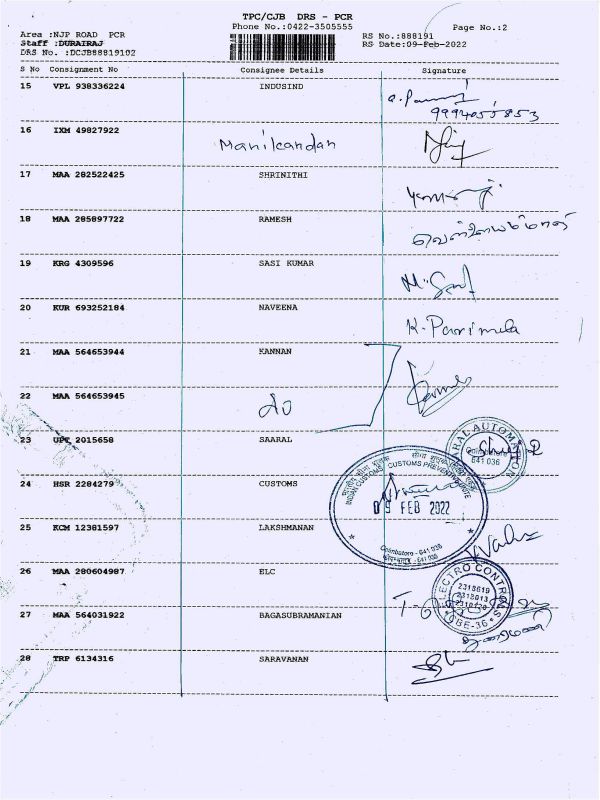 TPC/CJB DRS - PCR
Phone No.:0422-3505555 Page No.:2
Area :NJP ROAD PCR RS No.:888191
Staff :DURAIRAJ RS Date:09-Feb-2022
DRS No. :DCJB88819102
S No Consignment No Consignee Details Signature
15 VPL 938336224 INDUSIND
9994055853
16 IXM 49827922 Manikandan
17 MAA 282522425 SHRINITHI
18 MAA 285897722 RAMESH
19 KRG 4309596 SASI KUMAR
20 KUR 693252184 NAVEENA K. Parimela
21 MAA 564653944 KANNAN
22 MAA 564653945 do
23 UPT 2015658 SAARAL
AUTOMATION
Coimbatore
641 036
24 HSR 2284279 CUSTOMS
INDIAN CUSTOMS CUSTOMS PREVENTIVE UNITE
09 FEB 2022
Coimbatore - 641 036
25 KCM 12381597 LAKSHMANAN
26 MAA 280604987 ELC
ELECTRO CONTROLS
2318619
2318013
CBE-36
27 MAA 564031922 BAGASUBRAMANIAN
28 TRP 6134316 SARAVANAN